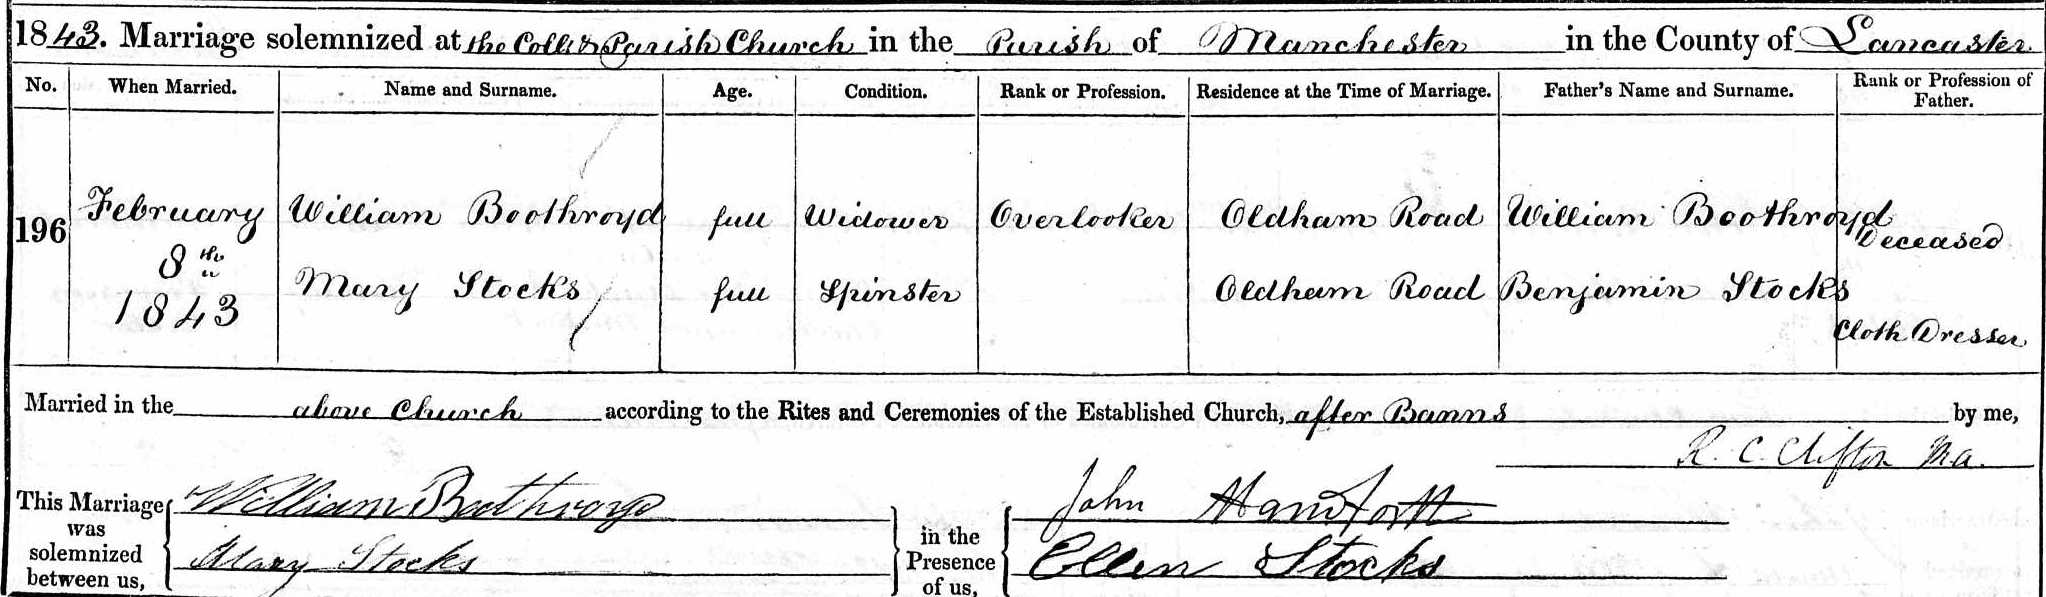 1843. Marriage solemnized at the Coll: & Parish Church in the Parish of Manchester in the County of Lancaster.
No. When Married. Name and Surname. Age. Condition. Rank or Profession. Residence at the Time of Marriage. Father's Name and Surname. Rank or Profession of Father.
196 February 8th 1843
William Boothroyd full Widower Overlooker Oldham Road William Boothroyd Deceased
Mary Stocks full Spinster Oldham Road Benjamin Stocks Cloth Dresser
Married in the above Church according to the Rites and Ceremonies of the Established Church, after Banns by me,
R. C. Clifton Ma.
This Marriage was solemnized between us,
William Boothroyd
Mary Stocks
in the Presence of us,
John
Ellen Stocks